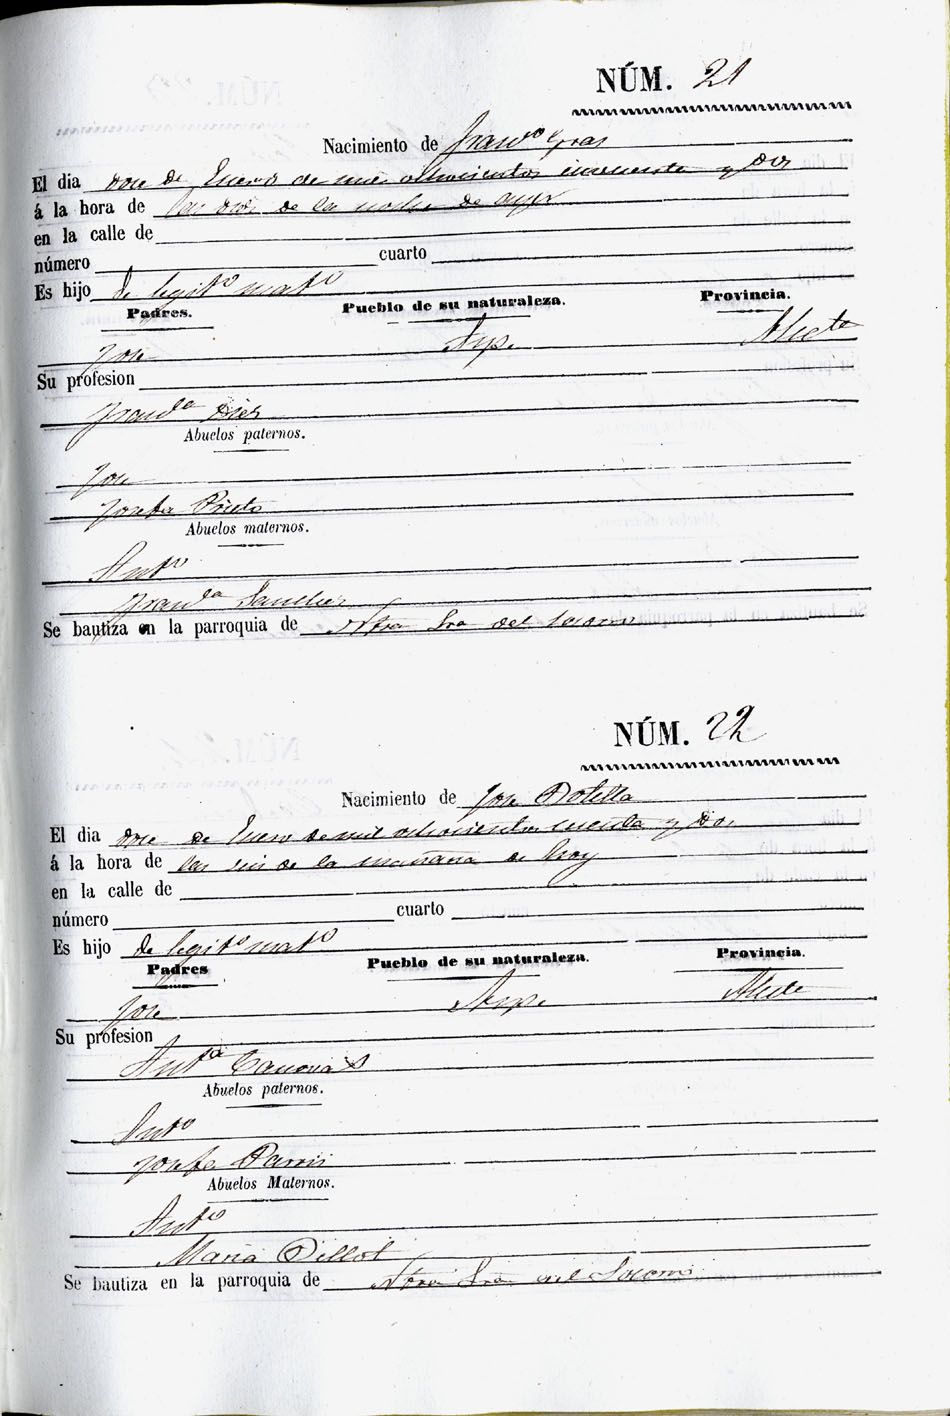 NÚM. 21
Nacimiento de Fran.co Gras
El dia doce de Enero de mil ochocientos cincuenta y dos
á la hora de las dos de la noche de ayer
en la calle de
número cuarto
Es hijo de legit.o mat.o
Padres. Pueblo de su naturaleza. Provincia.
Jose Asp.e Alic.te
Su profesion
Fran.ca
Abuelos paternos.
Jose
Josefa Prieto
Abuelos maternos.
Ant.o
Fran.ca Sanchez
Se bautiza en la parroquia de Ntra Sra del Socorro
NÚM. 22
Nacimiento de Jose Botella
El dia doce de Enero de mil ochocientos cincuenta y dos
á la hora de las seis de la mañana de hoy
en la calle de
número cuarto
Es hijo de legit.o mat.o
Padres Pueblo de su naturaleza. Provincia.
Jose Asp.e Alic.te
Su profesion
Ant.a Canovas
Abuelos paternos.
Ant.o
Josefa
Abuelos Maternos.
Ant.o
Maria
Se bautiza en la parroquia de Ntra Sra del Socorro